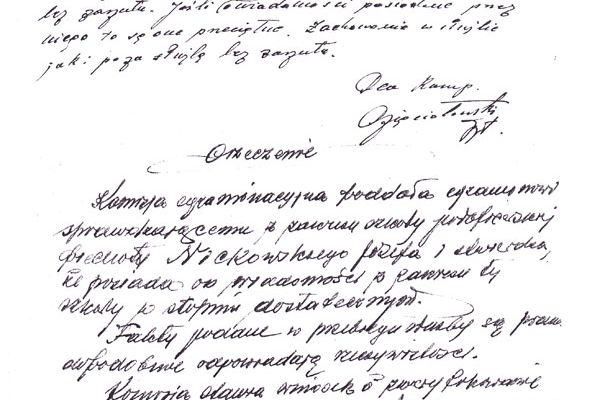 bez zarzutu. Jeśli wiadomości posiadane przez
niego to są one przeciętne. Zachowanie w służbie
jak i poza służbą bez zarzutu.
Dca Komp.
Orzeczenie
Komisja egzaminacyjna poddała egzaminowi
sprawdzającemu z zakresu szkoły podoficerskiej
piechoty Nickowskiego Józefa i stwierdza,
że posiada on wiadomości z zakresu tej
szkoły w stopniu dostatecznym.
Fakty podane w przebiegu służby są prawdo-
podobne odpowiadają rzeczywistości.
Komisja stawia wniosek o zweryfikowanie